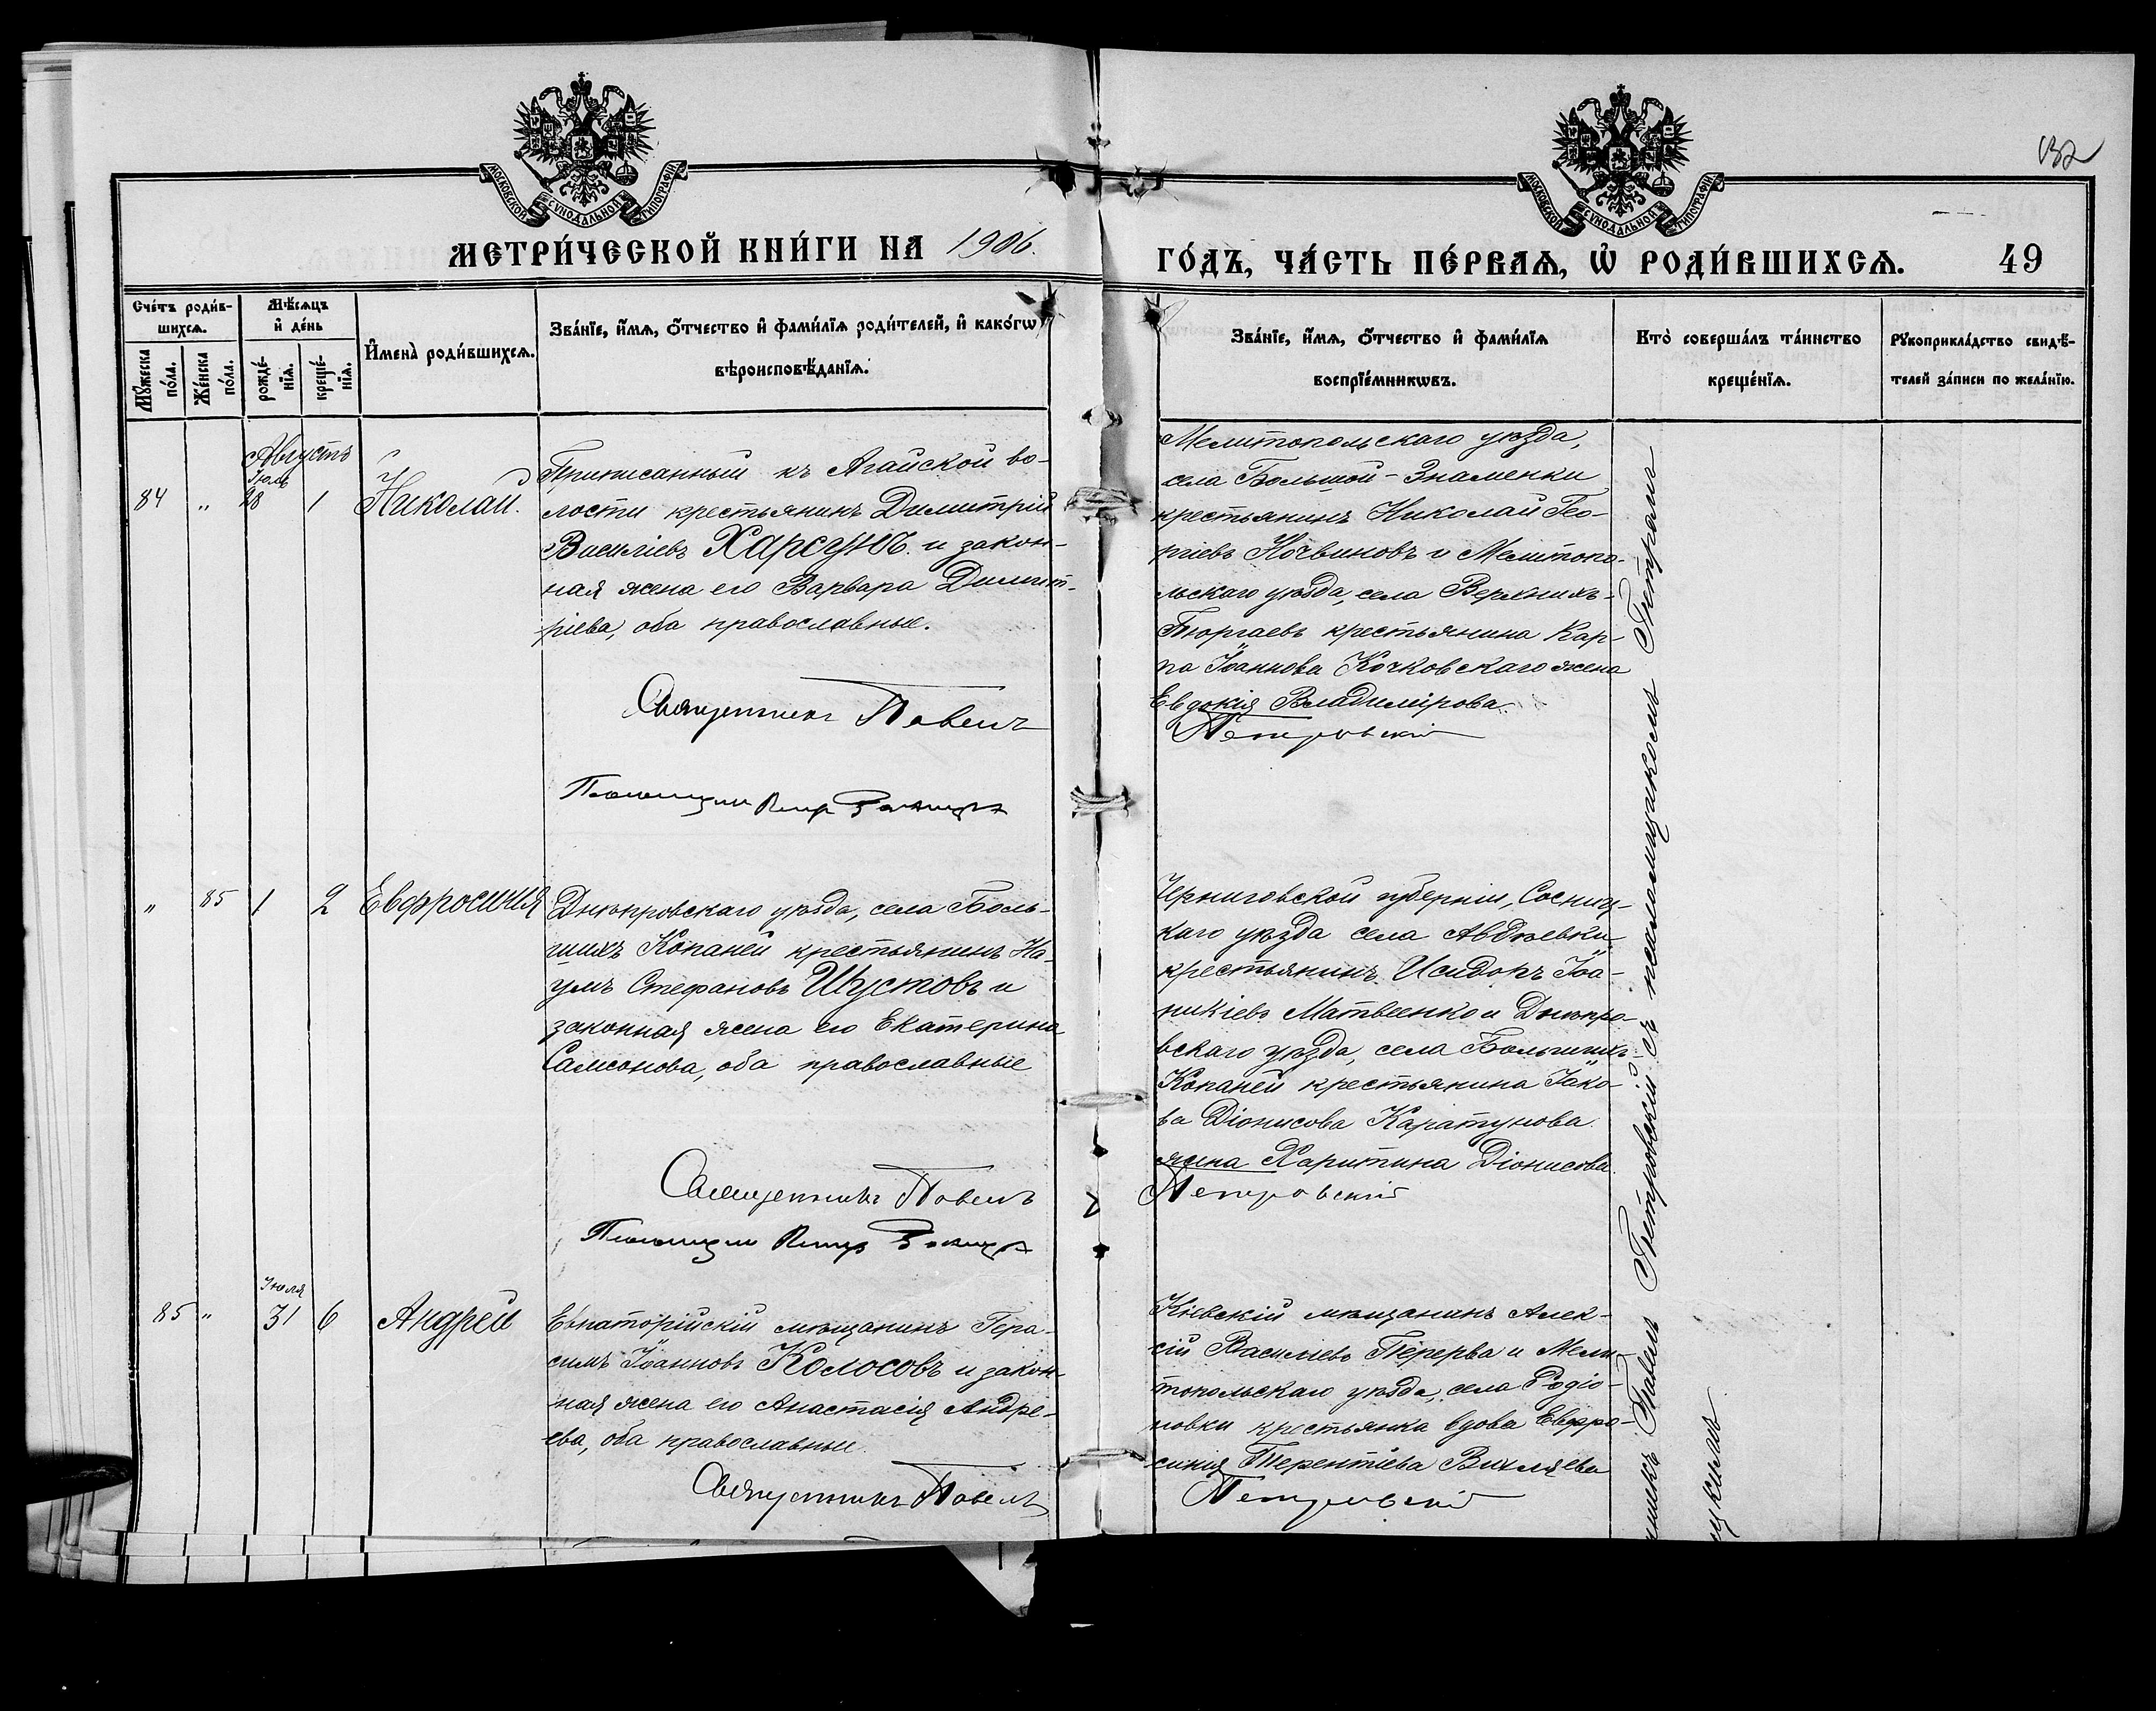 132
МОСКОВСКОЙ СУНОДАЛЬНОЙ ТИПОГРАФІИ
МОСКОВСКОЙ СУНОДАЛЬНОЙ ТИПОГРАФІИ
МЕТРИ́ЧЕСКОЙ КНИ́ГИ НА 1906.
ГО́ДЪ, ЧА́СТЬ ПЕ́РВАѦ, Ѡ РОДИ́ВШИХСѦ. 49
Сче́тъ роди́в-
шихсѧ.
Мѣ́сѧцъ
и҆ де́нь
Мꙋ́жеска по́ла.
Же́нска по́ла.
рожде́-
нїѧ.
креще́-
нїѧ.
И҆мена̀ роди́вшихсѧ.
Зва́нїе, и҆́мѧ, ѻ҆́тчество и҆ фами́лїѧ роди́телей, и҆ како́гѡ
вѣроисповѣ́данїѧ.
Зва́нїе, и҆́мѧ, ѻ҆́тчество и҆ фами́лїѧ
воспрїе́мникѡвъ.
Кто̀ соверша́лъ та́инство
креще́нїѧ.
Рꙋкоприкла́дство свидѣ́-
телей за́писи по жела́нїю.
Августъ
Іюль
84 " 28 1 Николай.
Приписанный къ Агайской во-
лости крестьянинъ Димитрій
Василіевъ Харсунъ и закон-
ная жена его Варвара Димит-
ріева, оба православные.
Священникъ Павелъ
Мелитопольскаго уѣзда,
села Большой-Знаменки
крестьянинъ Николай Гео-
ргіевъ и Мелитопо-
льскаго уѣзда, села Верхнихъ-
Торгаевъ крестьянина Кар-
па Іоаннова Кочковскаго жена
Евдокія Владимірова.
Петровскій
" 85 1 2 Евфросинія
Днѣпровскаго уѣзда, села Боль-
шихъ Копаней крестьянинъ На-
умъ Стефановъ Шустовъ и
законная жена его Екатерина
Самсонова, оба православные
Священникъ Павелъ
Черниговской губерніи, Сосниц-
каго уѣзда села Авдѣевки
крестьянинъ Исидоръ Іоа-
никіевъ Матвеенко и Днѣпро-
вскаго уѣзда, села Большихъ-
Копаней крестьянина Іако-
ва Діонисова Каратунова
жена Харитина Діонисова.
Петровскій
Іюля
85 " 31 6 Андрей
Евпаторійскій мѣщанинъ Гера-
симъ Іоанновъ Колосовъ и закон-
ная жена его Анастасія Андре-
ева, оба православные.
Священникъ Павелъ
Кіевскій мѣщанинъ Алек-
сій Василіевъ Перерва и Мели-
топольскаго уѣзда, села Родіо-
новки крестьянка вдова Евфро-
синія Терентіева Вихляева
Петровскій
Павелъ Петровскій съ псаломщикомъ Петромъ